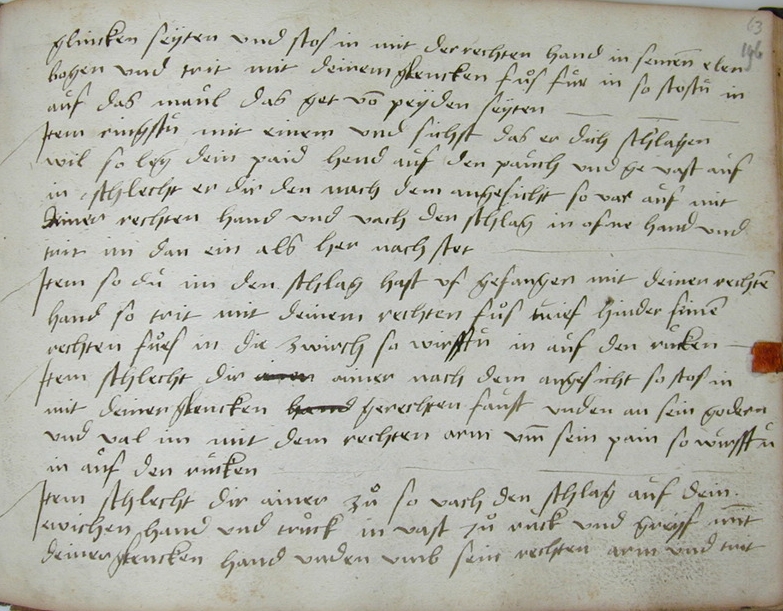 63
146
glincken seyten und stos in mit der rechten hand in seinen elen
bogen und trit mit deinem glencken fus für in so stostu in
auf das maul das get vō peyden seyten
Item ringstu mit einem und sichst das er dich schlahen
wil so leg dein paid hend auf den pauch und ge vast auf
in schlecht er dir den nach dem angesicht so var auf mit
deiner rechten hand und vach den schlag in ofne hand und
trit im dan ein als her nach stet
Item so du im den schlag hast uf gefangen mit deiner rechtē
hand so trit mit deinem rechten fus hinder sinē
rechten fues in die zwirch so wirfstu in auf den rucken
Item schlecht dir ainer nach dem angesicht so stos in
mit deiner glencken gerechten faust unden an sein godern
und val im mit dem rechten arm um sein pain so würfstu
in auf den rücken
Item schlecht dir ainer zu so vach den schlag auf dein
hand und truck in vast zu ruck und greyf mit
deiner glencken hand unden umb sein rechten arm und trit